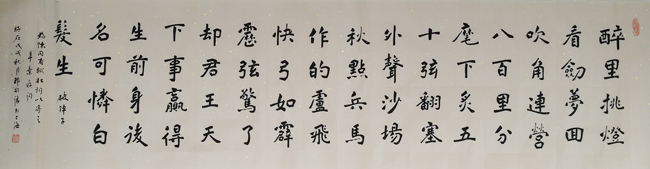 醉里挑燈
看劍夢回
吹角連營
八百里分
麾下炙五
十弦翻塞
外聲沙場
秋點兵馬
作的盧飛
快弓如霹
靂弦驚了
却君王天
下事贏得
生前身後
名可憐白
髮生 破陣子
為陳同甫賦壯詞以寄之
辛棄疾詞